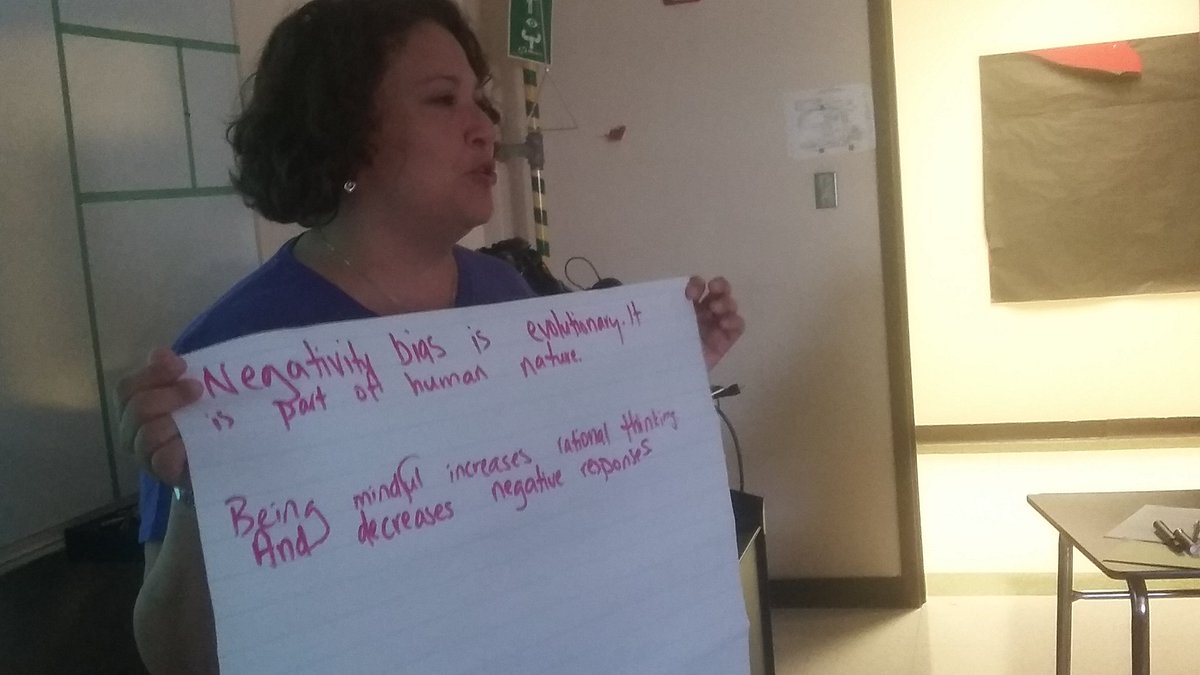 Negativity bias is evolutionary. It
is part of human nature.
Being mindful increases rational thinking
And decreases negative responses